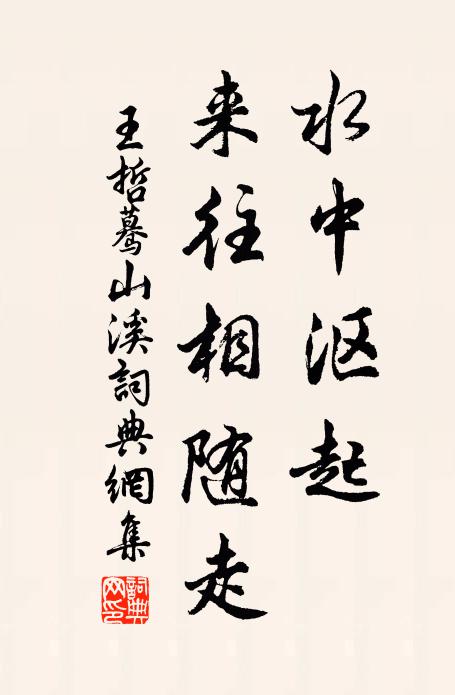 水中沤起
来往相随走
王哲蓦山溪詞典網集
詞典网印